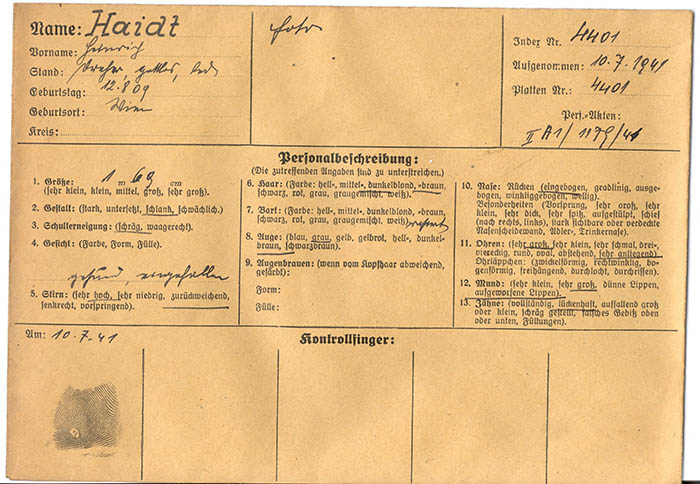 Name: Haidt
Vorname: Heinrich
Stand: Dreher, gottlos, led.
Geburtstag: 12.8.09
Geburtsort: Wien
Kreis:
Foto
Index Nr. 4401
Aufgenommen: 10.7.1941
Platten Nr. 4401
Pers.-Akten:
II A1/ 1179/41
Personalbeschreibung:
(Die zutreffenden Angaben sind zu unterstreichen.)
1. Größe: 1 m 69 cm
(sehr klein, klein, mittel, groß, sehr groß).
2. Gestalt: (stark, untersetzt, schlank, schwächlich).
3. Schulterneigung: (schräg, waagerecht).
4. Gesicht: (Farbe, Form, Fülle).
gesund, eingefallen
5. Stirn: (sehr hoch, sehr niedrig, zurückweichend,
senkrecht, vorspringend).
6. Haar: (Farbe: hell-, mittel-, dunkelblond, -braun,
schwarz, rot, grau, graugemischt, weiß).
7. Bart: (Farbe: hell-, mittel-, dunkelblond, -braun,
schwarz, rot, grau, graugemischt, weiß). rasiert
8. Auge: (blau, grau, gelb, gelbrot, hell-, dunkel-
braun, schwarzbraun).
9. Augenbrauen: (wenn vom Kopfhaar abweichend,
gefärbt):
Form:
Fülle:
10. Nase: Rücken (eingebogen, gradlinig, ausge-
bogen, winkliggebogen, wellig).
Besonderheiten (Vorsprung, sehr groß, sehr
klein, sehr dick, sehr spitz, aufgestülpt, schief
(nach rechts, links), stark sichtbare oder verdeckte
Nasenscheidewand, Adler-, Trinkernase).
11. Ohren: (sehr groß, sehr klein, sehr schmal, drei-,
viereckig, rund, oval, abstehend, sehr anliegend).
Ohrläppchen: (zwickelförmig, rechtwinklig, bo-
genförmig, freihängend, durchlocht, durchrissen).
12. Mund: (sehr klein, sehr groß, dünne Lippen,
aufgeworfene Lippen).
13. Zähne: (vollständig, lückenhaft, auffallend groß
oder klein, schräg gestellt, falsches Gebiß oben
oder unten, Füllungen).
Am: 10.7.41
Kontrollfinger: